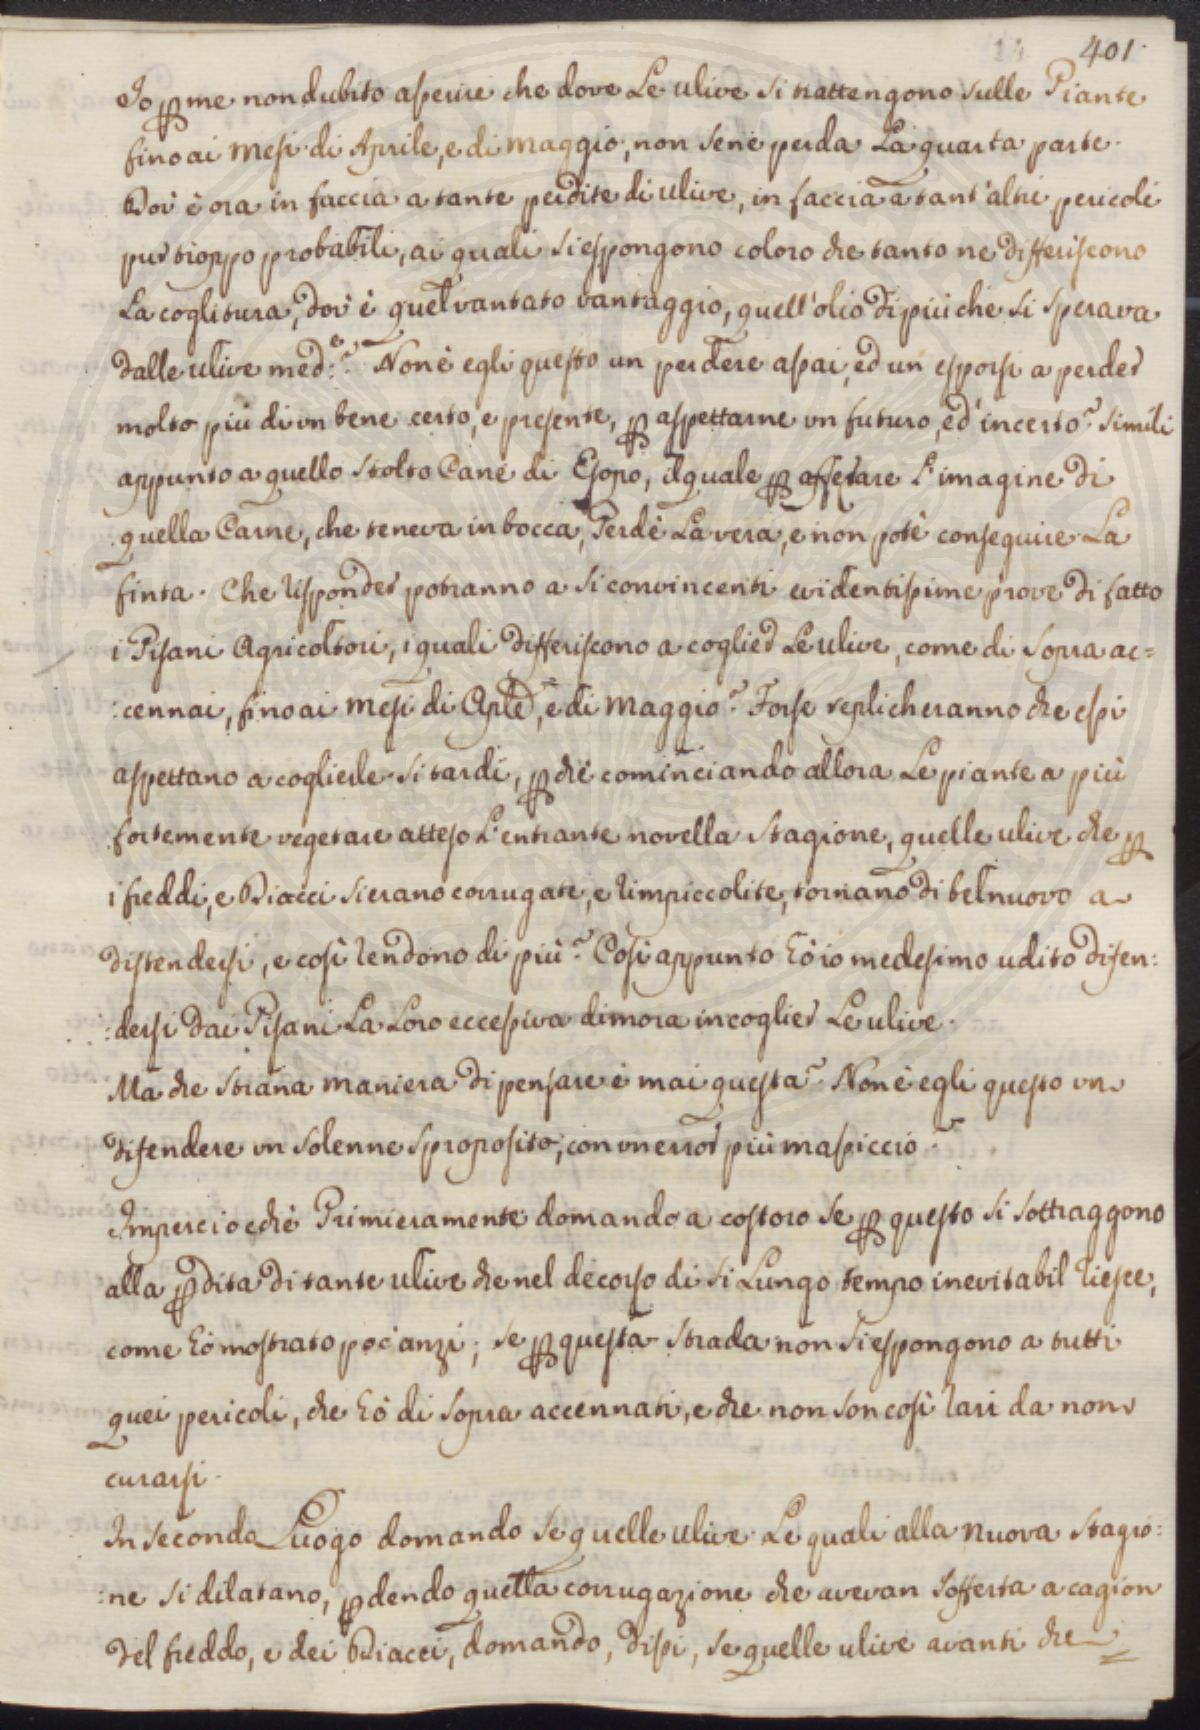 401.
Io p me non dubito asserire che dove le ulive si trattengono sulle Piante
fino ai mesi di Aprile, e di maggio, non sene perda la quarta parte.
Dov' è ora in faccia a tante perdite di ulive, in faccia a tant'altri pericoli
pur troppo probabili, ai quali si espongono coloro che tanto ne differiscono
la coglitura, dov' è quel vantato vantaggio, quell'olio di più che si sperava
dalle ulive med.e? Non è egli questo un perdere assai, ed un esporsi a perder
molto più di un bene certo, e presente, p aspettarne un futuro, ed incerto? Simili
appunto a quello stolto Cane di Esopo, il quale p affettare l'imagine di
quella Carne, che teneva in bocca, Perdè la vera, e non potè conseguire la
finta. Che risponder potranno a si convincenti evidentissime prove di fatto
i Pisani Agricoltori, i quali differiscono a coglier le ulive, come di sopra ac=
:cennai, fino ai mesi di Aple, e di maggio? Forse replicheranno che essi
aspettano a coglierle si tardi, p chè cominciando allora le piante a più
fortemente vegetare atteso l'entrante novella stagione, quelle ulive che p
i freddi, e Diacci si erano corrugate, e rimpiccolite, tornano di bel nuovo a
distendersi, e così rendono di più? Così appunto hò io medesimo udito difen:
:dersi dai Pisani la loro eccessiva dimora in coglier le ulive.
Ma che strana maniera di pensare è mai questa? Non è egli questo un
difendere un solenne sproposito, con un error più massiccio?
Imperciocchè Primieramente domando a costoro se p questo si sottraggono
alla pdita di tante ulive che nel decorso di si lungo tempo inevitabil riesce,
come hò mostrato poc'anzi; se p questa strada non si espongono a tutti
quei pericoli, che hò di sopra accennati, e che non son così rari da non
curarsi.
In secondo Luogo domando se quelle ulive le quali alla nuova stagio:
:ne si dilatano, pdendo quella corrugazione che avevan sofferta a cagion
del freddo, e dei Diacci, domando, dissi, se quelle ulive avanti che